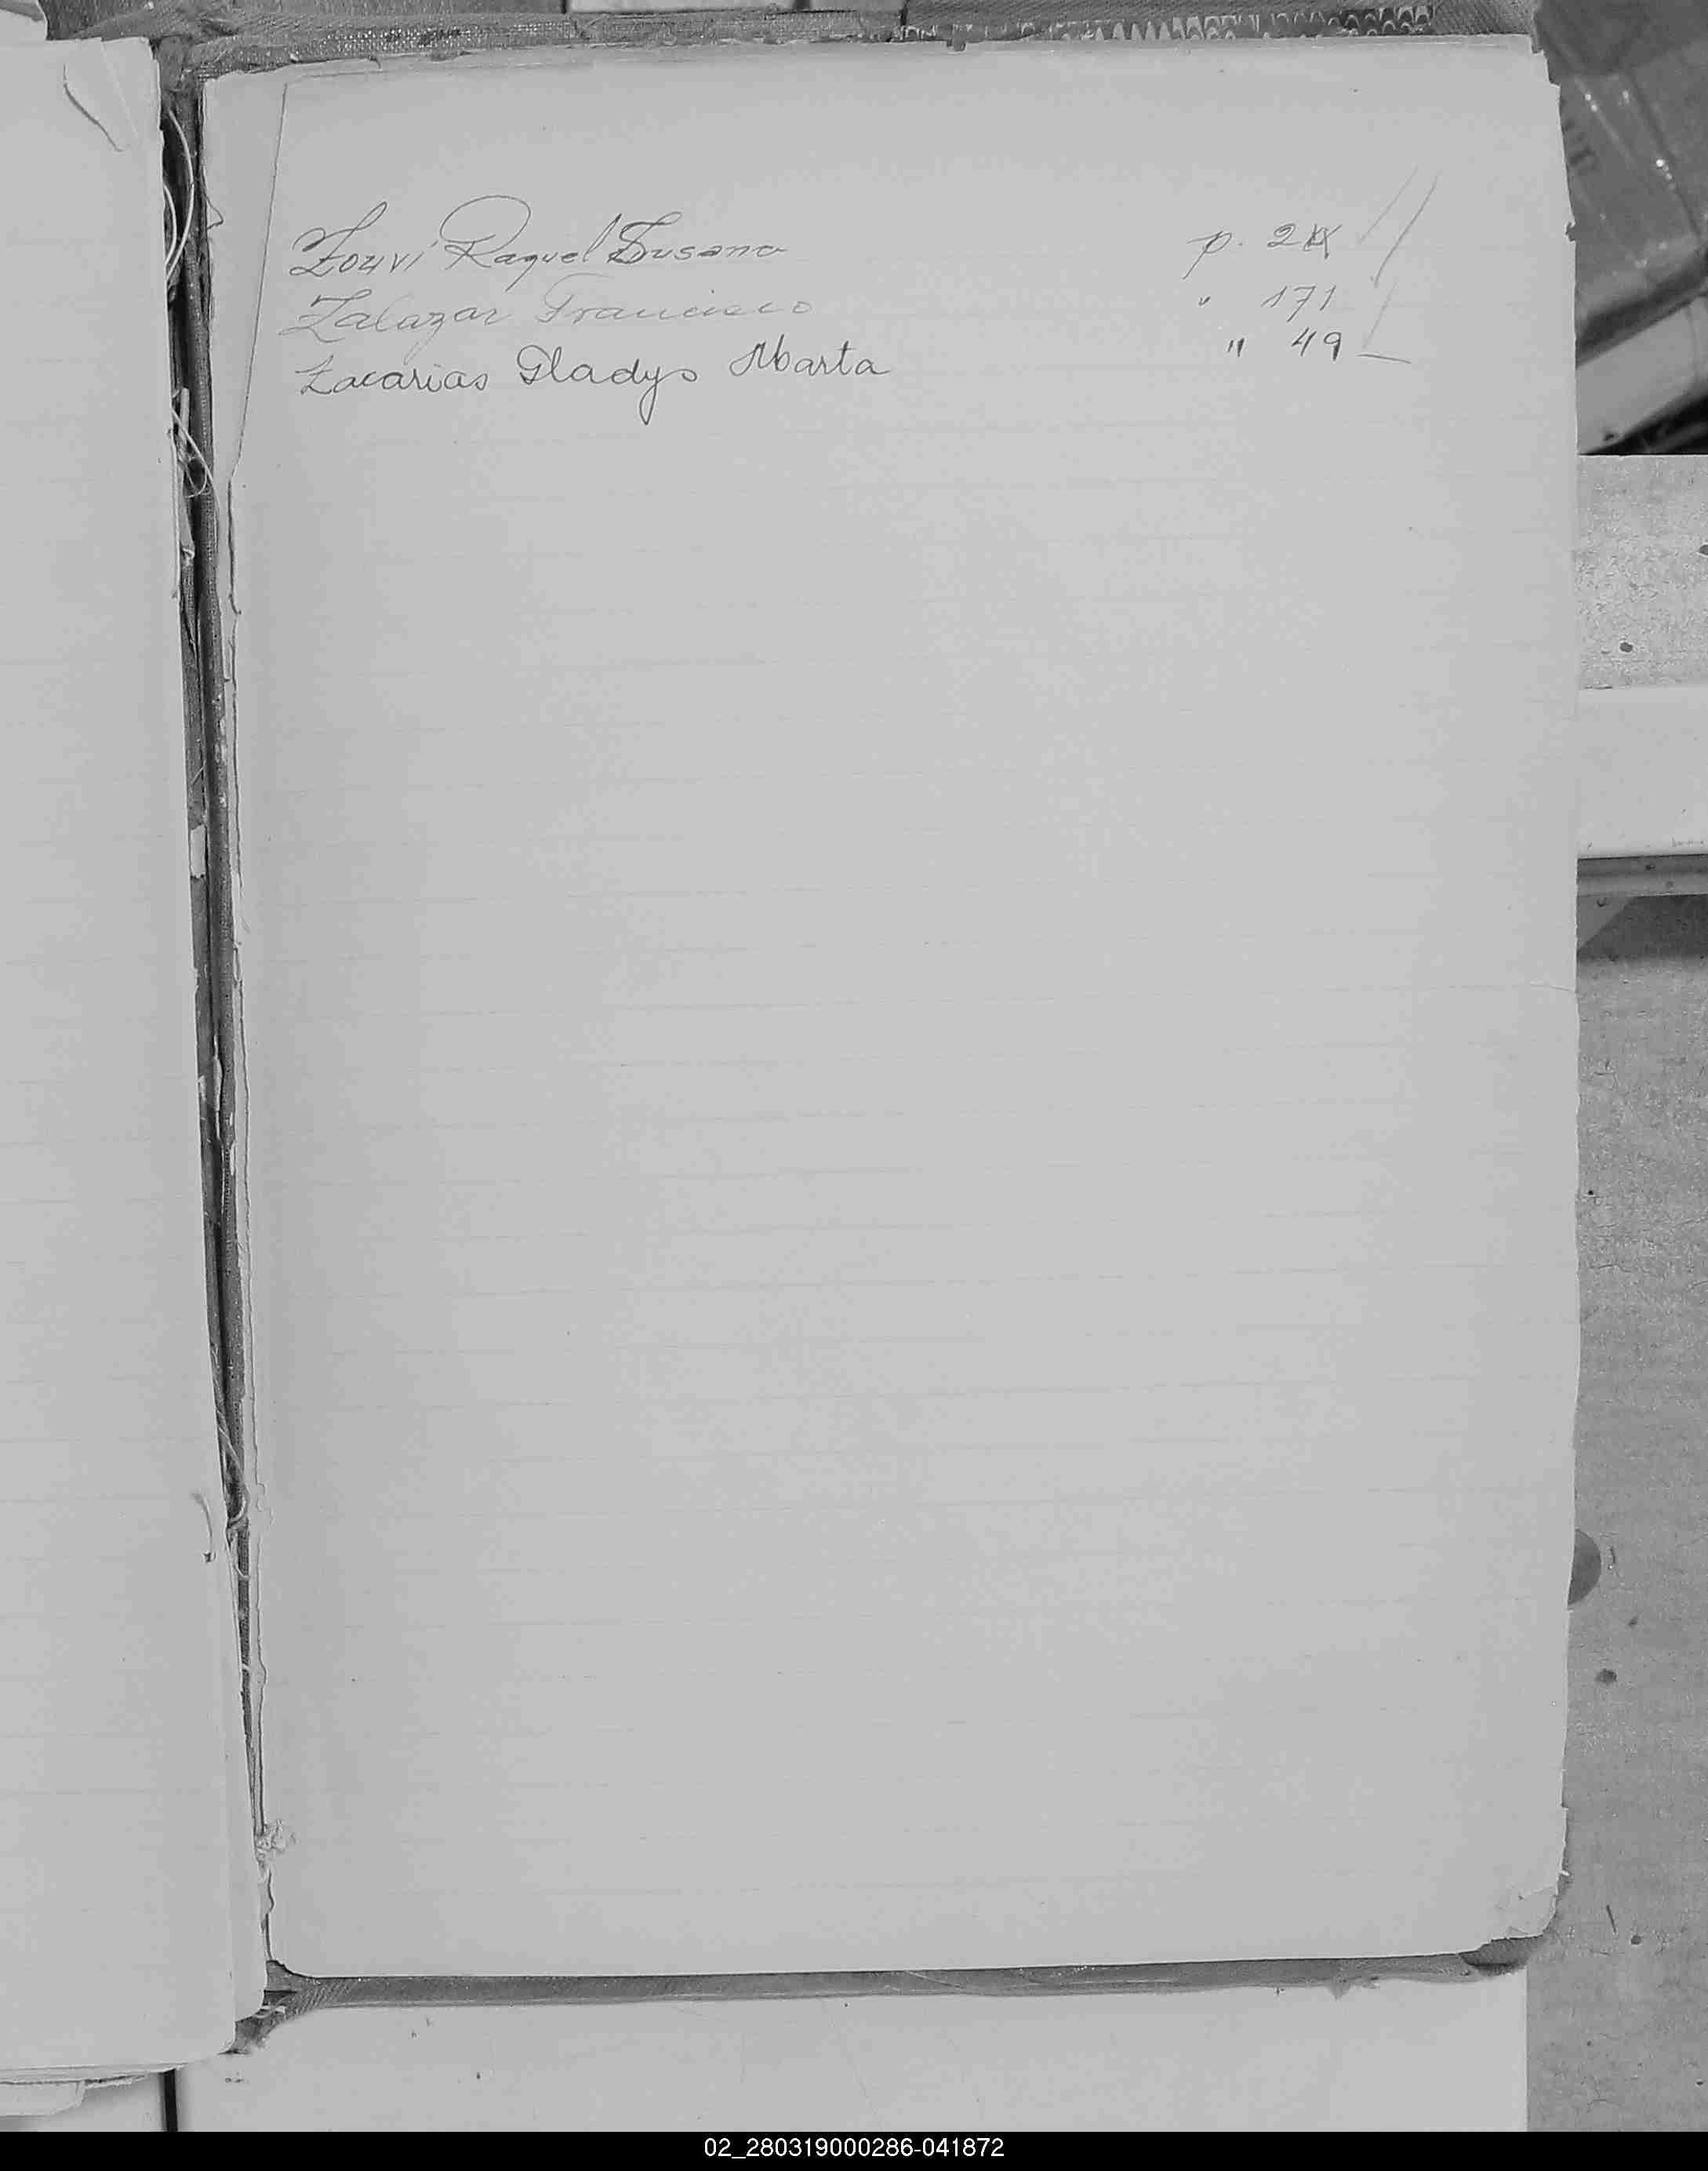 Zouvi Raquel Susana p. 2
Zalazar Francisco " 171
Zacarias Gladys Marta " 49
02_280319000286-041872